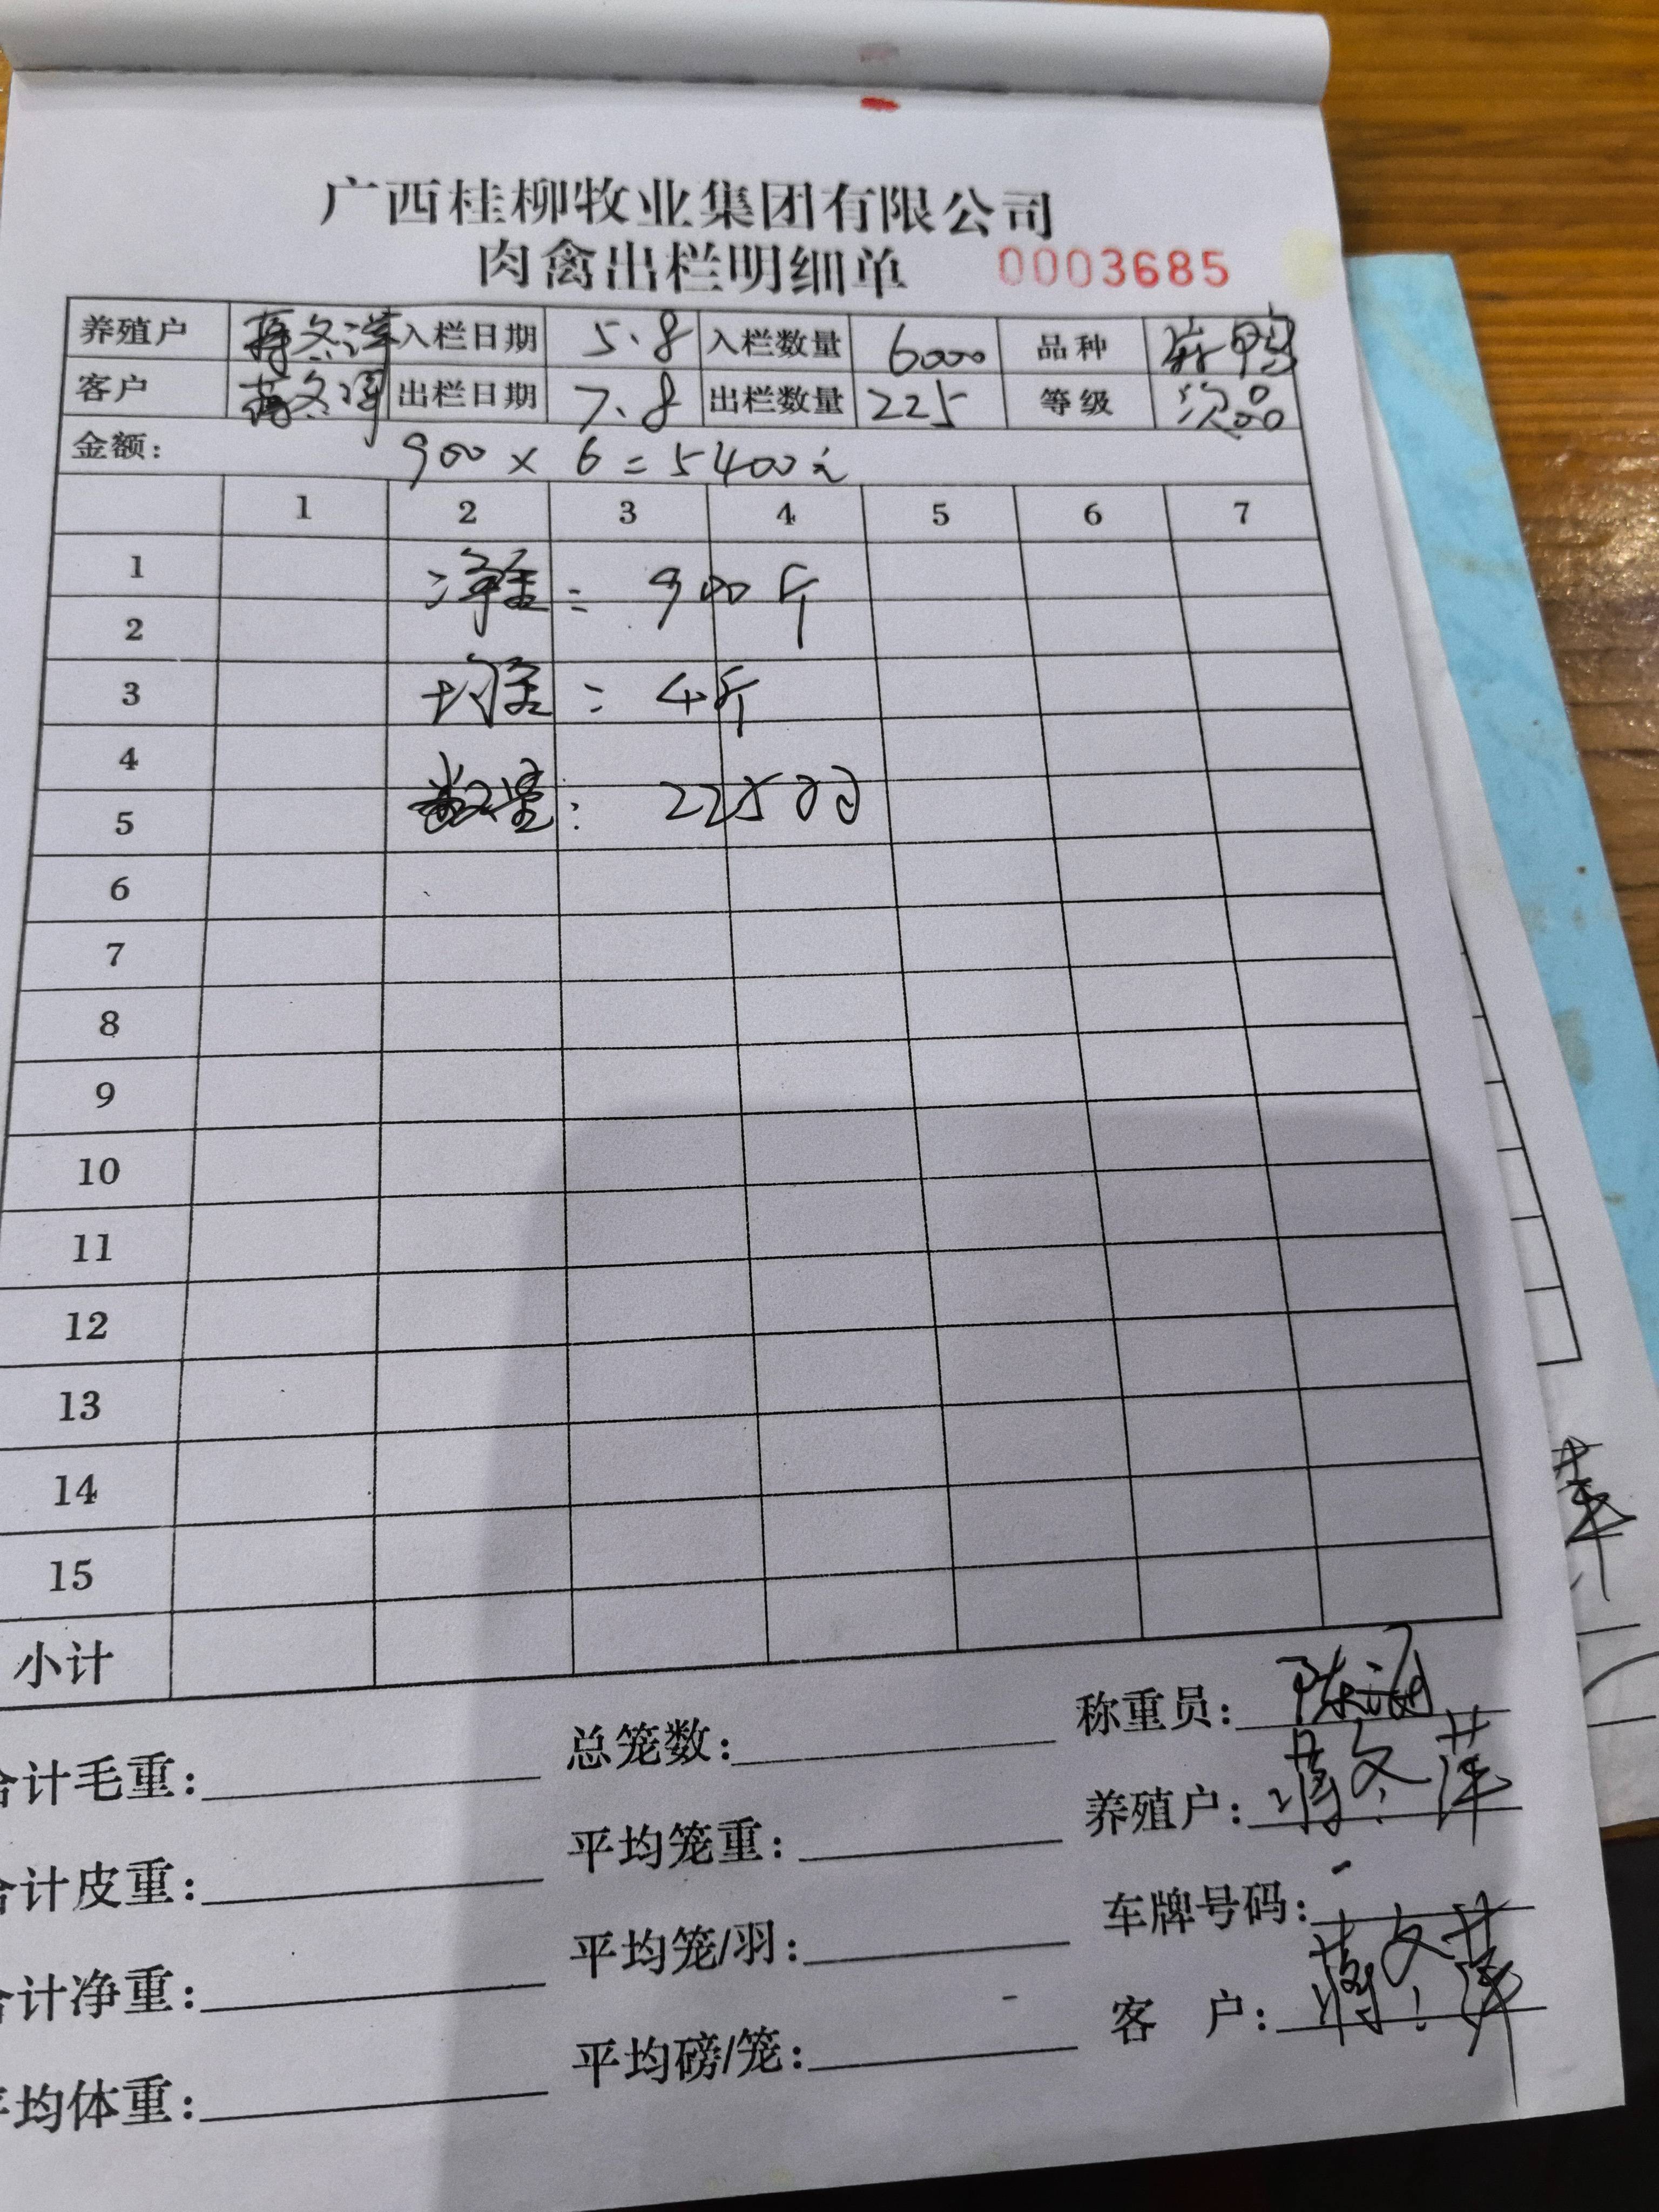 广西桂柳牧业集团有限公司
肉禽出栏明细单 0003685
养殖户 蒋冬萍 入栏日期 5.8 入栏数量 6000 品种 麻鸭
客户 蒋冬萍 出栏日期 7.8 出栏数量 225 等级 次品
金额: 900 × 6 = 5400元
1 2 3 4 5 6 7
1 净重: 900斤
2
3 均重: 4斤
4
5 数量: 225羽
6
7
8
9
10
11
12
13
14
15
小计
合计毛重: 总笼数: 称重员:
合计皮重: 平均笼重: 养殖户: 蒋冬萍
合计净重: 平均笼/羽: 车牌号码:
平均体重: 平均磅/笼: 客 户: 蒋冬萍